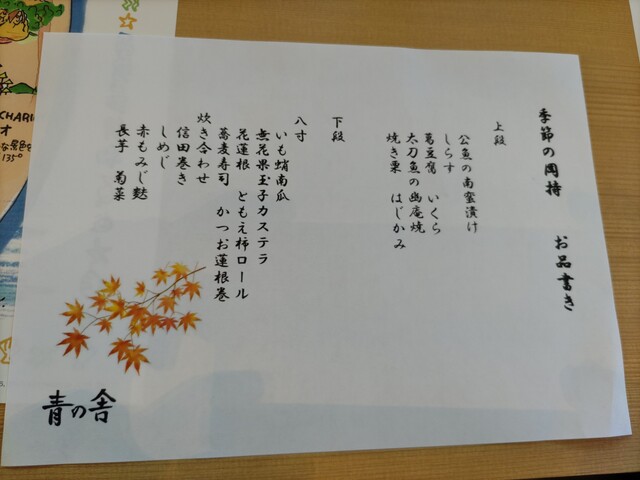 季節の岡持　お品書き
上段
公魚の南蛮漬け
しらす
葛豆腐　いくら
太刀魚の幽庵焼
焼き栗　はじかみ
下段
八寸
いも蛸南瓜
無花果玉子カステラ
花蓮根　ともえ柿ロール
蕎麦寿司　かつお蓮根巻
炊き合わせ
信田巻き
しめじ
赤もみじ麩
長芋　菊菜
青の舎
CHARI
オ
135°